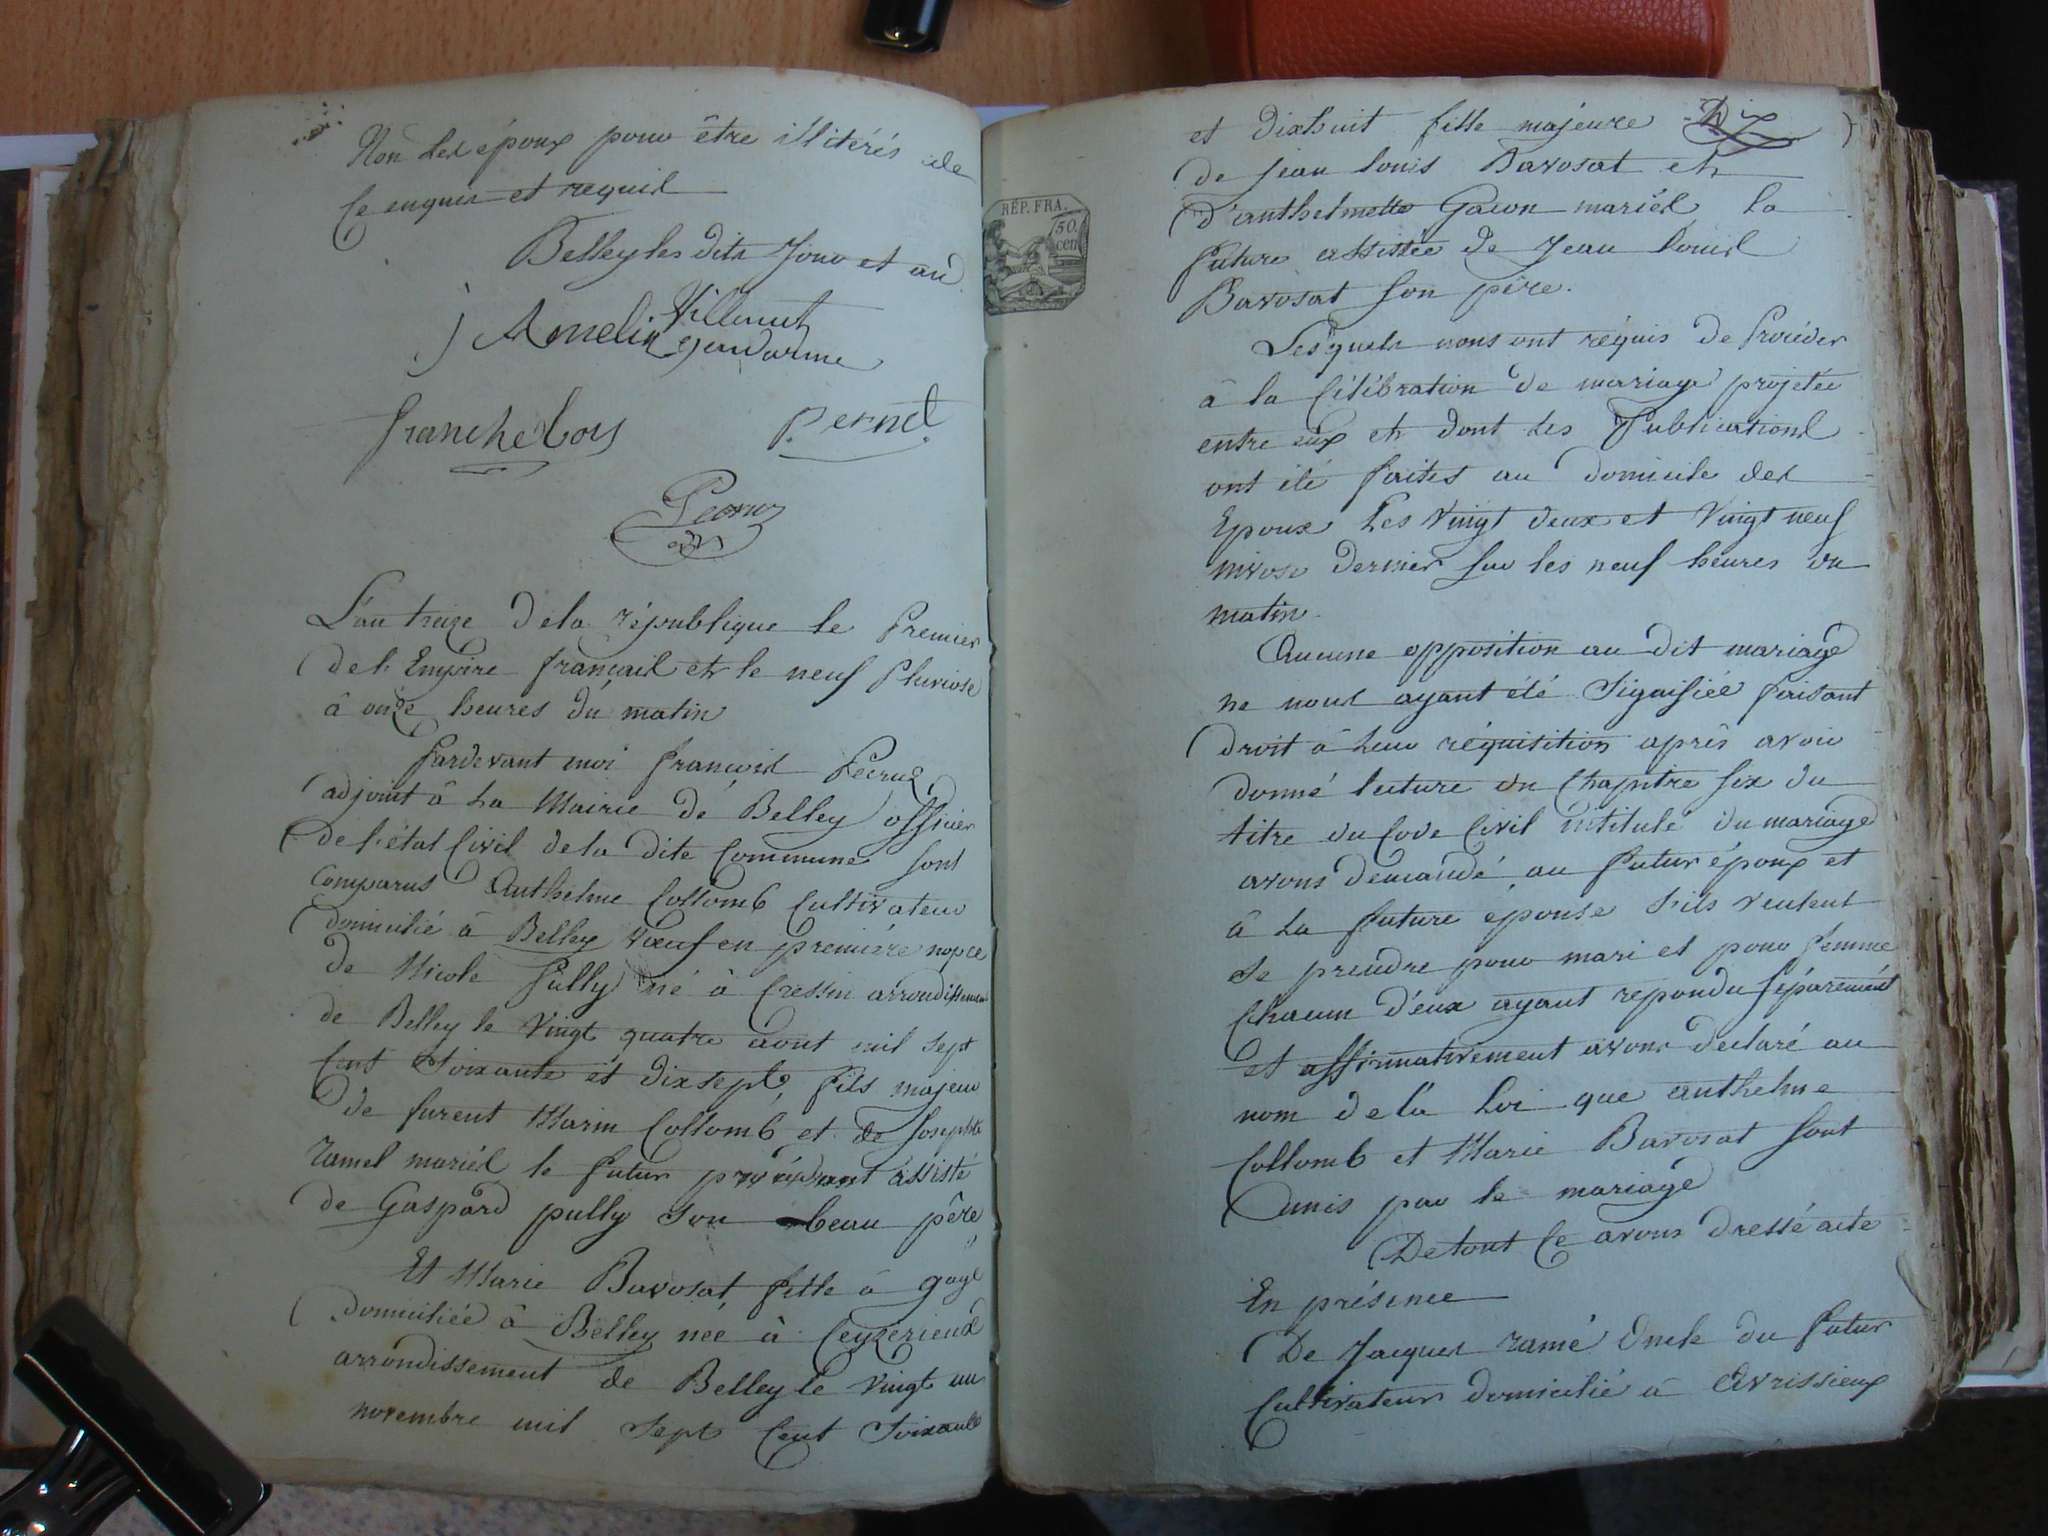 Non les époux pour être illitérés de
ce enquis et requis
Belley les dits jour et an
J Amelin Villermet
gendarme
franchebois
Pernet
Pecruz
L'an treize de la république le premier
de l'Empire français et le neuf Pluviose
à onze heures du matin
Pardevant moi françois Pecruz
adjoint à la Mairie de Belley officier
de l'état Civil de la dite Commune sont
comparus Anthelme Collomb Cultivateur
domicilié à Belley voeuf en premiére nopce
de Nicole Pully né à Cressin arrondissement
de Belley le vingt quatre aout mil sept
cent Soixante et dixsept, fils majeur
de furent Marin Collomb et de Josephte
ramel mariés le futur procédant assisté
de Gaspard pully son beau père
Et Marie Bavosat fille à gage
domiciliée à Belley née à Ceyzerieux
arrondissement de Belley le vingt un
novembre mil sept Cent Soixante
RÉP. FRA.
50.
cen
et dixhuit fille majeure Dix
de jean louis Bavosat et
d'anthelmette Gacon mariés, la
future assistée de Jean Louis
Bavosat son père.
Lesquels nous ont réquis de Procéder
à la Célébration de mariage projetée
entre eux et dont les Publications
ont été faites au domicile des
Epoux Les vingt deux et Vingt neuf
nivose dernier sur les neuf heures du
matin.
Aucune opposition au dit mariage
ne nous ayant été Signifiée faisant
droit à leur réquisition après avoir
donné lecture du Chapitre six du
titre du Code Civil intitulé du mariage
avons demandé au futur époux et
à La future épouse s'ils veulent
se prendre pour mari et pour femme
Chacun d'eux ayant repondu séparément
et affirmativement avons declaré au
nom de la Loi que anthelme
Collomb et Marie Bavosat sont
unis par le mariage
De tout Ce avons dressé acte
En présence
De Jacques ramé Oncle du futur
Cultivateur domicilié à Avrissieux